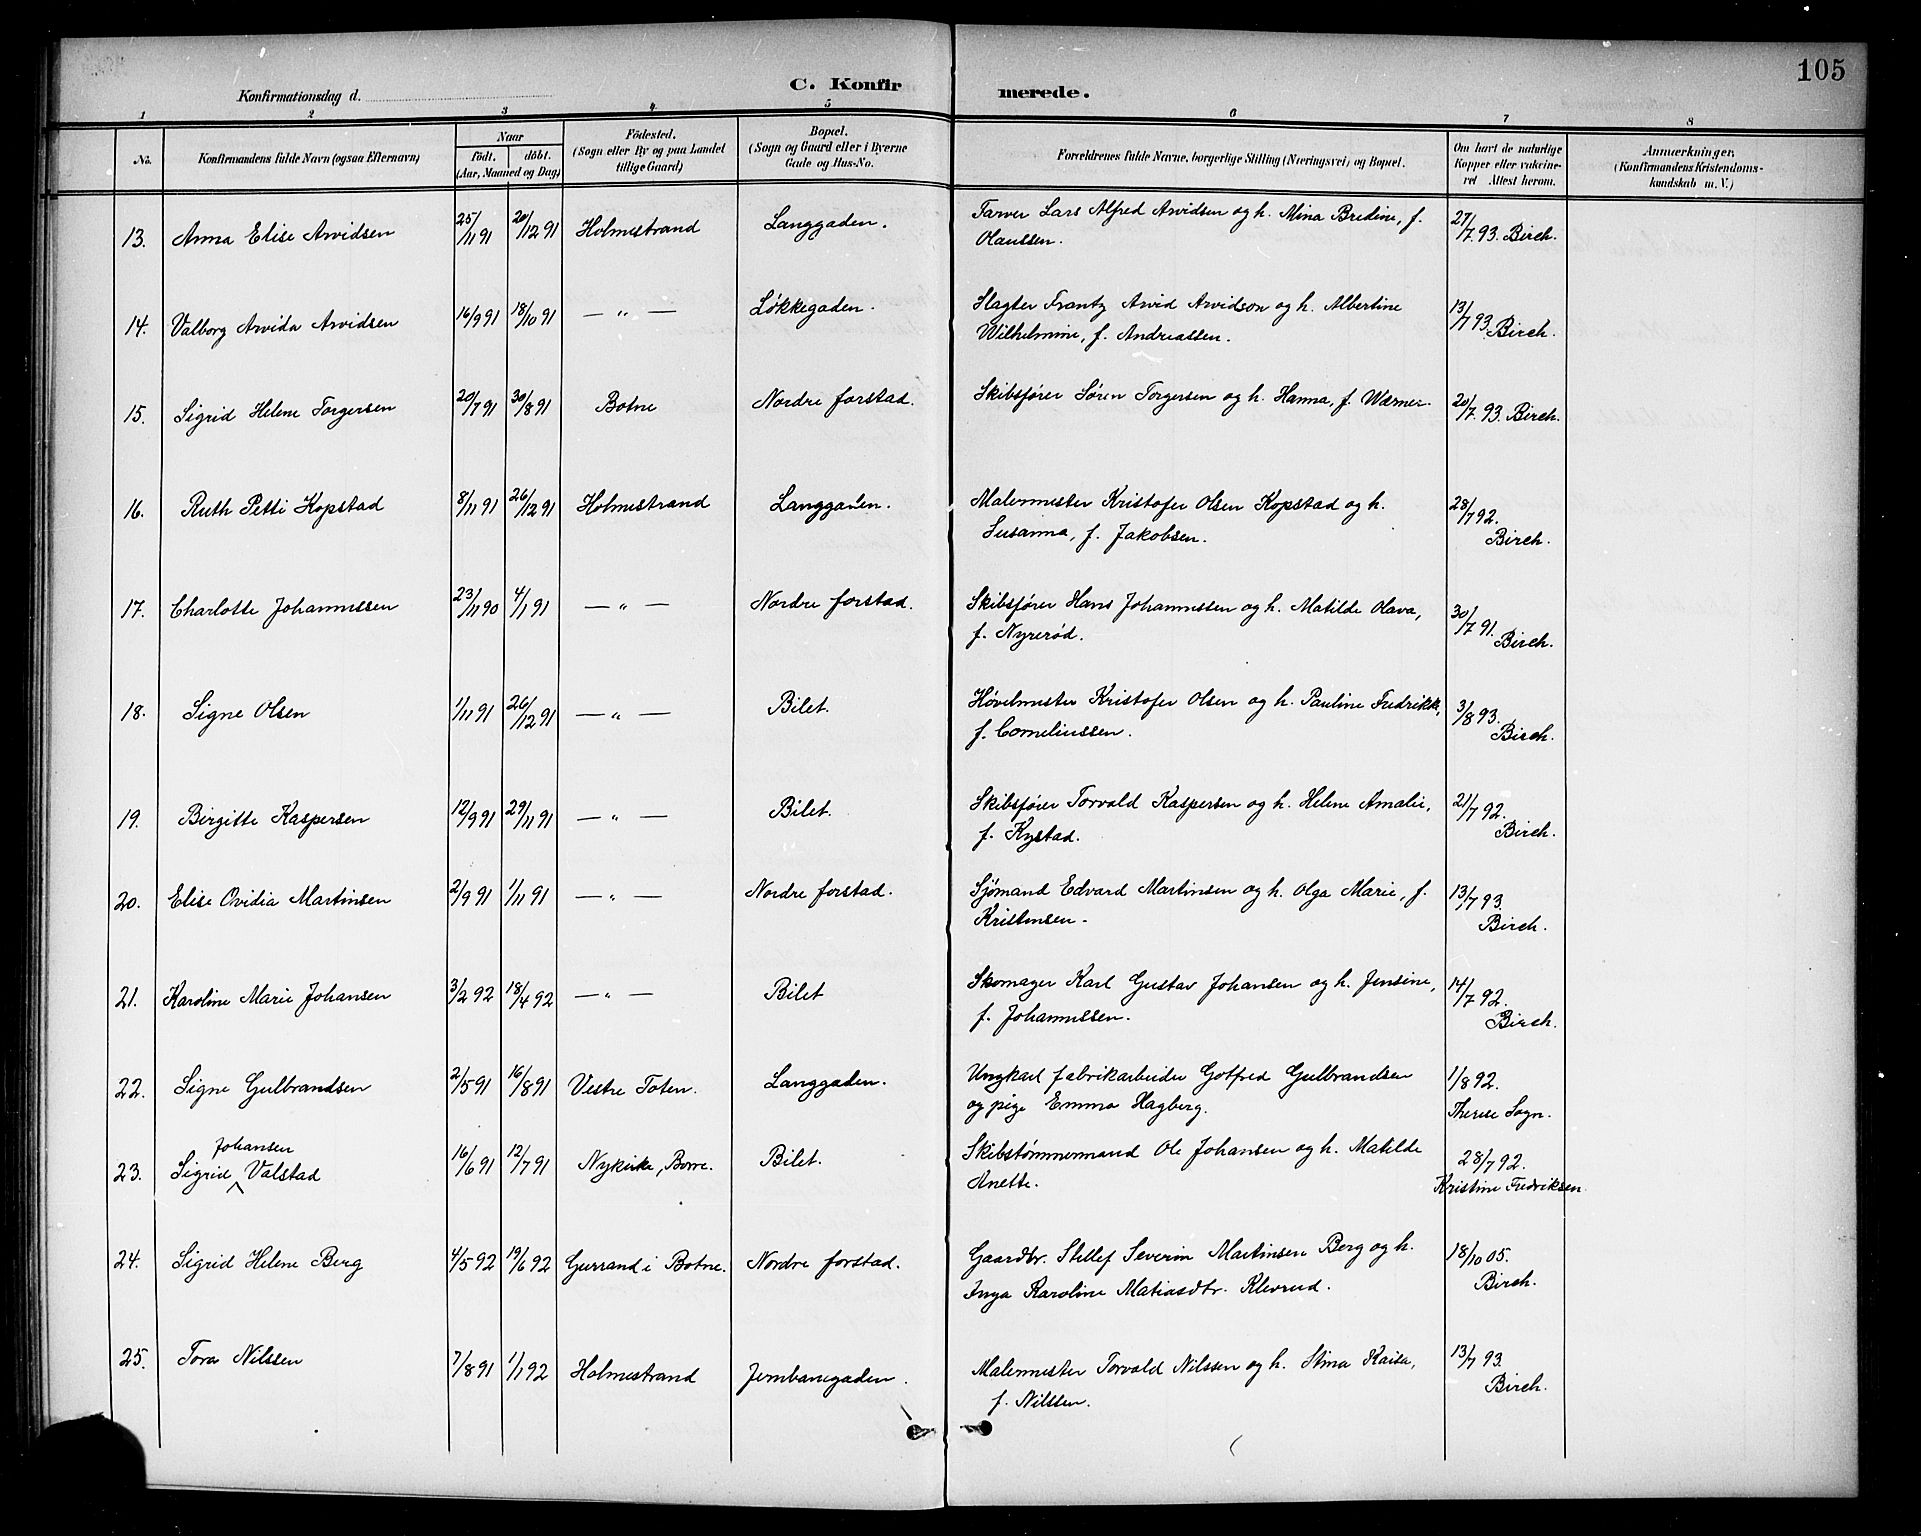 105
C. Konfirmerede.
Konfirmationsdag d.
1 2 3 4 5 6 7 8
No. Konfirmandens fulde Navn (ogsaa Efternavn) Naar født. døbt. (Aar, Maaned og Dag) Födested. (Sogn eller By og paa Landet tillige Gaard) Bopæl. (Sogn og Gaard eller i Byerne Gade og Hus-No. Forældrenes fulde Navne, borgerlige Stilling (Næringsvei) og Bopæl. Om havt de naturlige Kopper eller vakcineret Attest herom. Anmærkninger. (Konfirmandens Kristendomskundskab m. V.)
13. Anna Elise Arvidsen 25/11 91 20/12 91 Holmestrand Langgaden. Farver Lars Alfred Arvidsen og h. Mina Bredine, f. 27/7. 93. Birch.
Olaussen.
14. Valborg Arvida Arvidsen 16/9 91 18/10 91 — " — Løkkegaden. Slagter Frantz Arvid Arvidson og h. Albertine 13/7 93. Birch.
Wilhelmine, f. Andreassen.
15. Sigrid Helene Torgersen 20/7 91 30/8 91 Botne Nordre forstad. Skibsfører Søren Torgersen og h. Hanna, f. Wærner. 20/7. 93. Birch.
16. Ruth Petti Kopstad 8/11 91 26/12 91 Holmestrand Langgaden. Malermester Kristofer Olsen Kopstad og h. 28/7 92.
Susanna, f. Jakobsen. Birch.
17. Charlotte Johannessen 23/11 90 4/1 91 — " — Nordre forstad. Skibsfører Hans Johannessen og h. Matilde Olava, 30/7 91.
f. Nyrerød. Birch.
18. Signe Olsen 1/11 91 26/12 91 — " — Bilet. Høvelmester Kristofer Olsen og h. Pauline Fredrikke, 3/8 93.
f. Corneliussen. Birch.
19. Birgitte Kaspersen 12/9 91 29/11 91 — " — Bilet. Skibsfører Torvald Kaspersen og h. Helene Amalie, 21/7 92.
f. Kystad. Birch.
20. Elise Ovidia Martinsen 2/9 91 1/11 91 — " — Nordre forstad. Sjømand Edvard Martinsen og h. Olga Marie, f. 13/7 93.
Kristensen. Birch.
21. Karoline Marie Johansen 3/2 92 18/4 92 — " — Bilet Skomager Karl Gustav Johansen og h. Jensine, 14/7 92.
f. Johannessen. Birch.
22. Signe Gulbrandsen 2/5 91 16/8 91 Vestre Toten. Langgaden. Ungkarl fabrikarbeider Gotfred Gulbrandsen 1/8 92.
og pige Emma Hagberg. Therese Sogn.
Johansen
23. Sigrid Valstad 16/6 91 12/7 91 Nykirke, Borre. Bilet. Skibstømmermand Ole Johansen og h. Matilde 28/7 92.
Anette. Kristine Fredriksen
24. Sigrid Helene Berg 4/5 92 19/6 92 Gurrand i Botne. Nordre forstad. Gaardbr. Stillef Severin Martinsen Berg og h. 18/10 05.
Inga Karoline Matiasdtr. Klevrud. Birch.
25. Tora Nilssen 7/8 91 1/1 92 Holmestrand Jernbanegaden. Malermester Torvald Nilssen og h. Stina Kaisa, 13/7 93.
f. Nilssen. Birch.